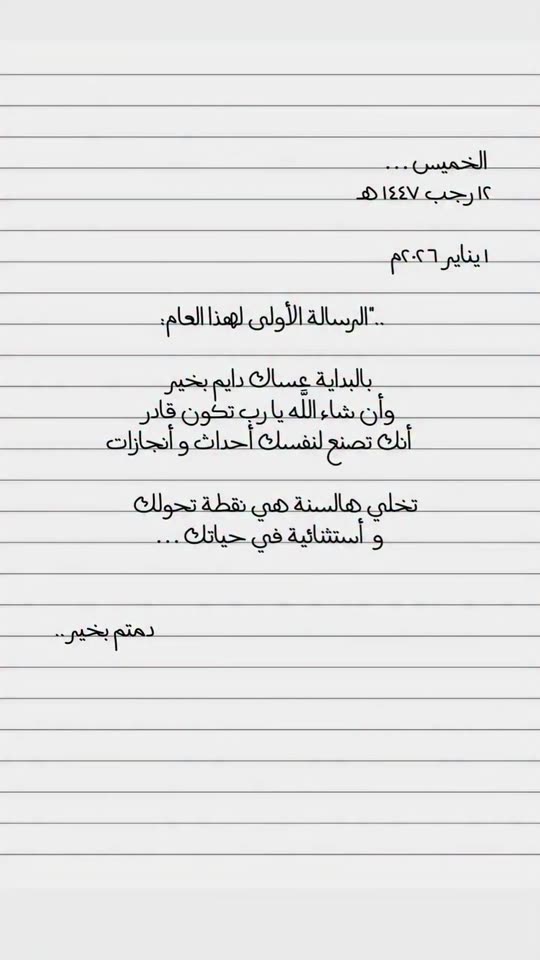 الخميس...
١٢ رجب ١٤٤٧ هـ
١ يناير ٢٠٢٦م
.."الرسالة الأولى لهذا العام:
بالبداية عساك دايم بخير
وأن شاء اللَّه يا رب تكون قادر
أنك تصنع لنفسك أحداث و أنجازات
تخلي هالسنة هي نقطة تحولك
و أستثنائية في حياتك...
دمتم بخير..